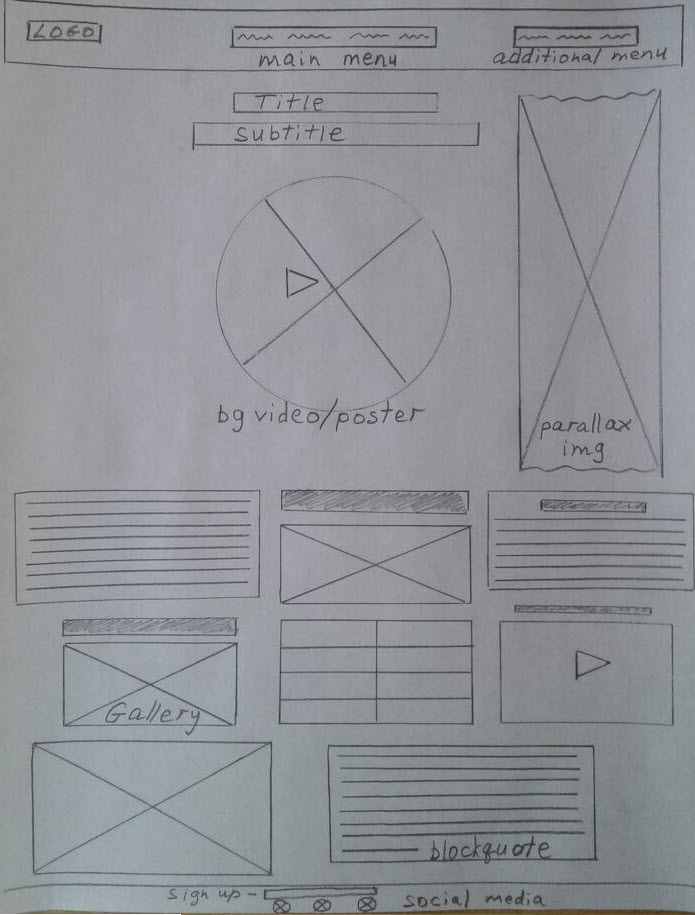 LOGO
main menu
additional menu
Title
Subtitle
bg video/poster
parallax
img
Gallery
blockquote
sign up - 
social media